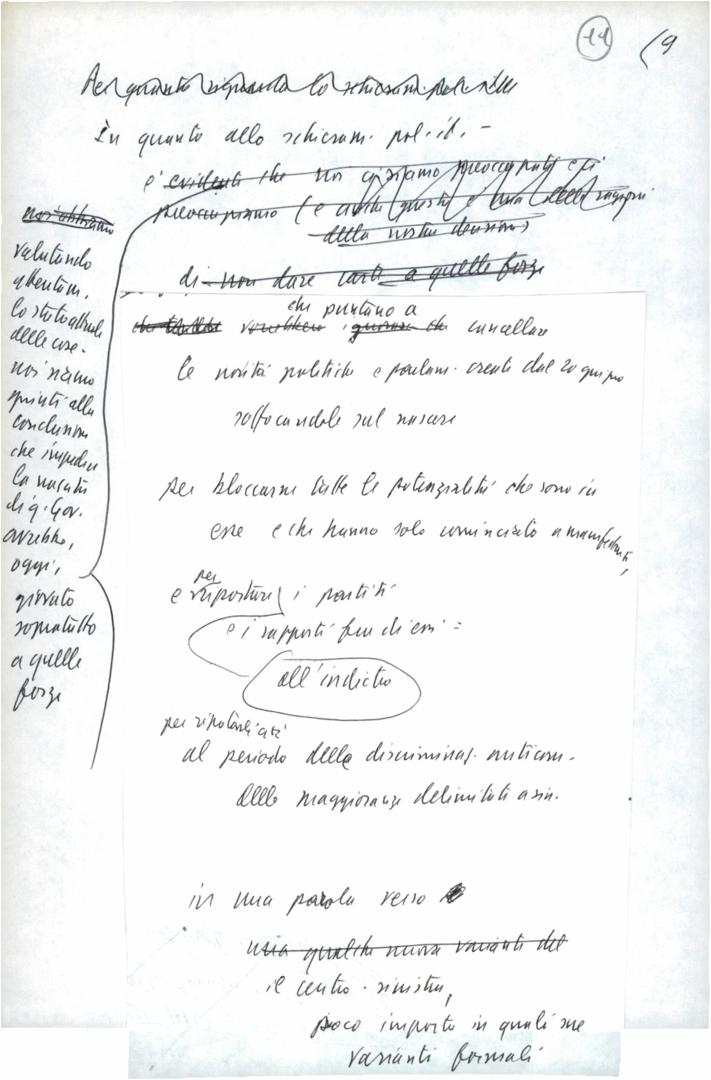 11
(9
Per quanto riguarda lo schieram. polit.
In quanto allo schieram. polit. -
e' evidente che noi ci siamo preoccupati e ci
preoccupiamo (e anche questa è una delle ragioni
della nostra decisione)
di non dare carte a quelle forze
noi abbiamo
valutando
attentam.
lo stato attuale
delle cose.
noi siamo
giunti alla
conclusione
che impedire
la nascita
di q. Gov.
avrebbe,
oggi,
giovato
sopratutto
a quelle
forze
che puntano a
vorrebbero cancellare
le novità politiche e parlam. create dal 20 giugno
soffocandole sul nascere
per bloccarne tutte le potenzialità che sono in
esse e che hanno solo cominciato a manifestarsi,
per
e risospingere i partiti
e i rapporti fra di essi =
all'indietro
per riportarli
al periodo della discriminaz. anticom.
delle maggioranze delimitate a sin.
in una parola verso
una qualche nuova variante del
il centro-sinistra,
poco importa in quali sue
varianti formali